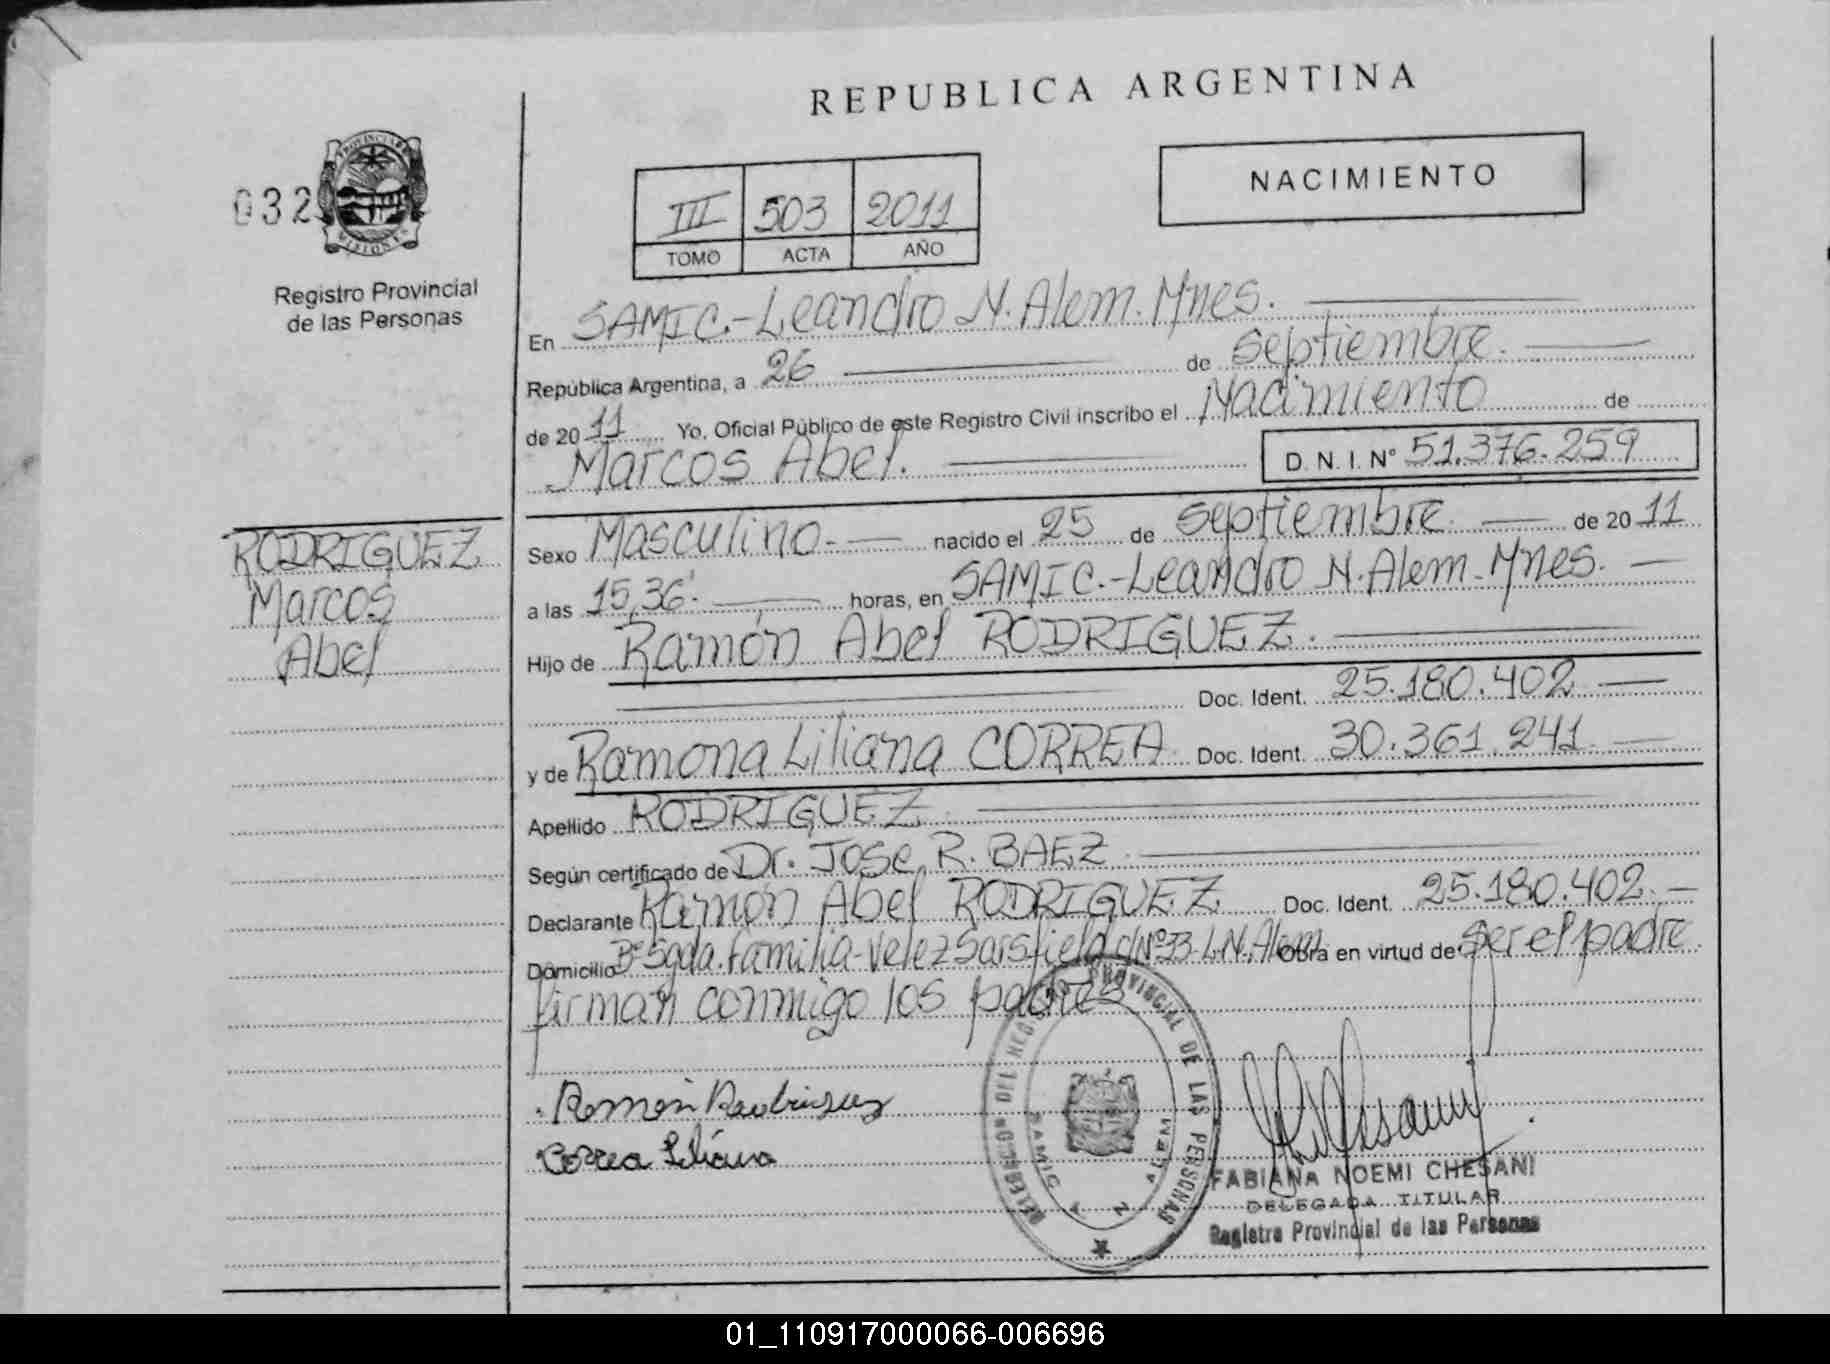 REPUBLICA ARGENTINA
NACIMIENTO
032
PROVINCIA DE
MISIONES
Registro Provincial
de las Personas
III 503 2011
TOMO ACTA AÑO
En SAMIC.-Leandro N. Alem. Mnes.
República Argentina, a 26 de Septiembre.
de 20 11 Yo, Oficial Público de este Registro Civil inscribo el Nacimiento de
Marcos Abel. D. N. I. Nº 51.376.259
RODRIGUEZ
Marcos
Abel
Sexo Masculino.- nacido el 25 de Septiembre. de 20 11
a las 15,36'. horas, en SAMIC.-Leandro N. Alem. Mnes.
Hijo de Ramón Abel RODRIGUEZ.
Doc. Ident. 25.180.402
y de Ramona Liliana CORREA Doc. Ident. 30.361.241
Apellido RODRIGUEZ
Según certificado de Dr. Jose R. BAEZ
Declarante Ramón Abel RODRIGUEZ Doc. Ident. 25.180.402.
Domicilio Bº Sgda. Familia-Velez Sarsfield c/Nº33-L.N.Alem Obra en virtud de Ser el padre
firman conmigo los padres
Ramón Rodriguez
Correa Liliana
PROVINCIAL DE LAS PERSONAS
SAMIC L N ALEM
FABIANA NOEMI CHESANI
DELEGADA TITULAR
Registro Provincial de las Personas
01_110917000066-006696